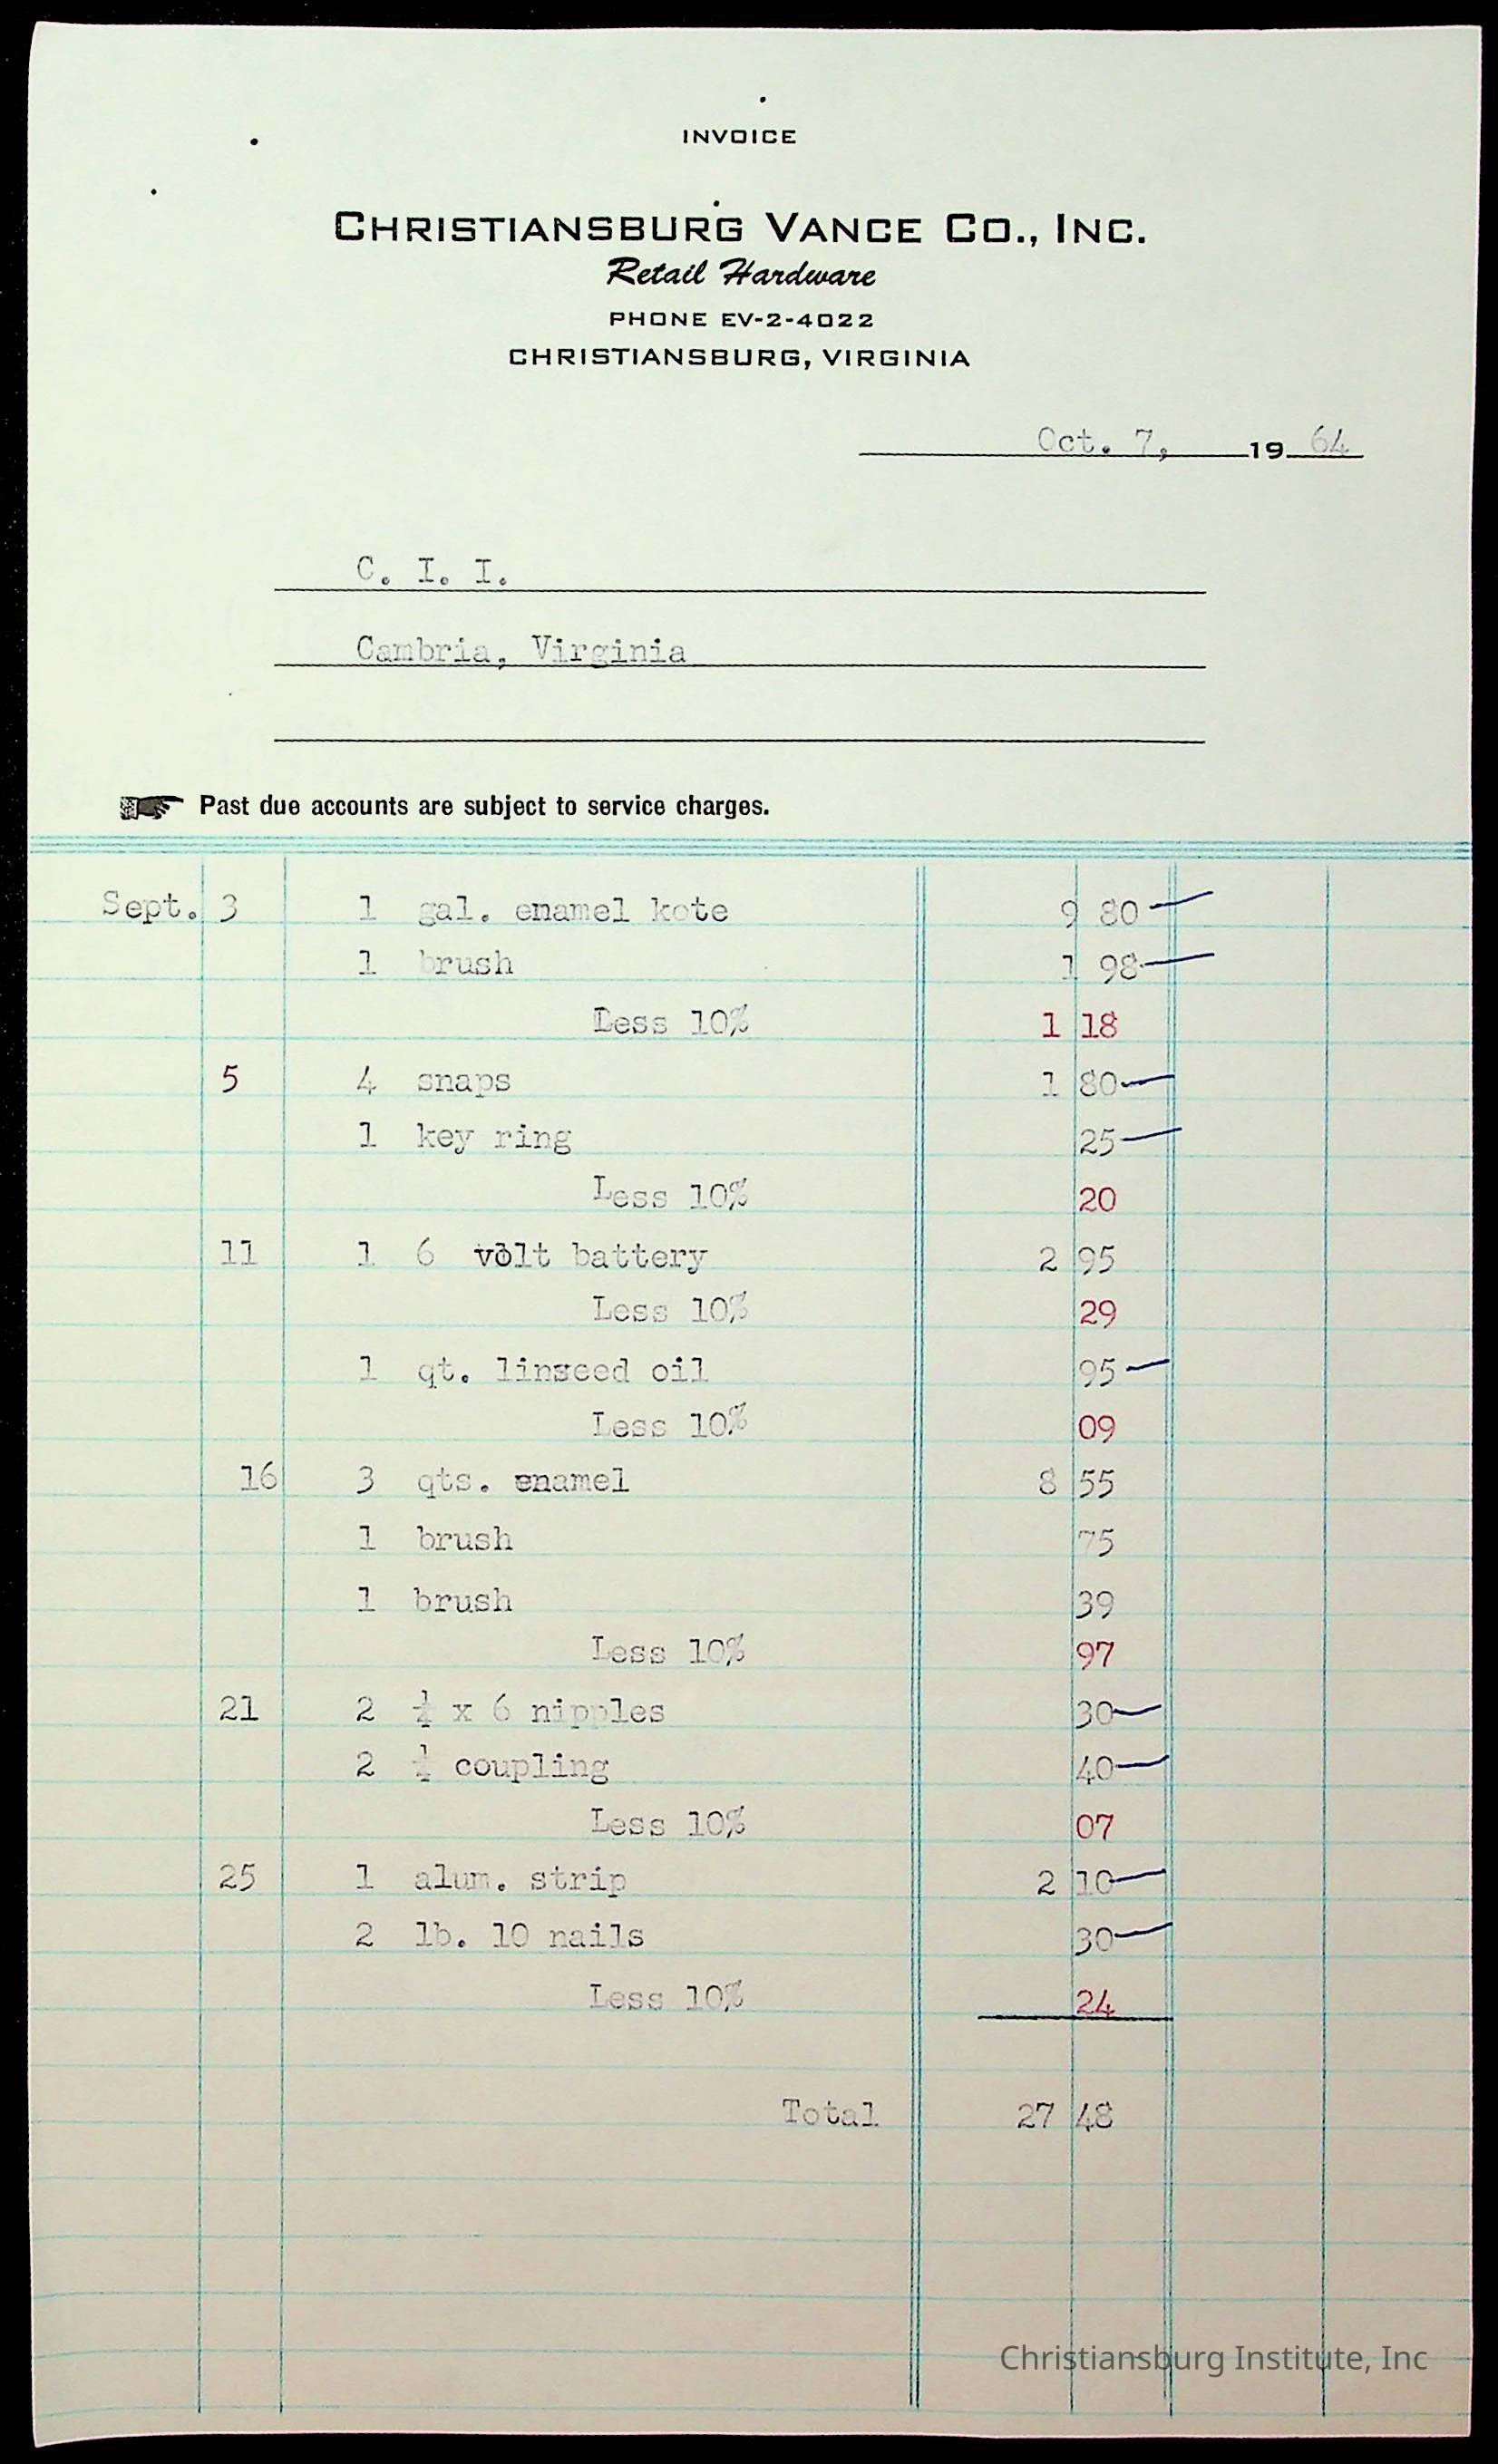 INVOICE
CHRISTIANSBURG VANCE CO., INC.
Retail Hardware
PHONE EV-2-4022
CHRISTIANSBURG, VIRGINIA
Oct. 7, 19 64
C. I. I.
Cambria, Virginia
Past due accounts are subject to service charges.
Sept. 3 1 gal. enamel kote 9 80
1 brush 1 98
Less 10% 1 18
5 4 snaps 1 80
1 key ring 25
Less 10% 20
11 1 6 volt battery 2 95
Less 10% 29
1 qt. linseed oil 95
Less 10% 09
16 3 qts. enamel 8 55
1 brush 75
1 brush 39
Less 10% 97
21 2 ¼ x 6 nipples 30
2 ¼ coupling 40
Less 10% 07
25 1 alum. strip 2 10
2 lb. 10 nails 30
Less 10% 24
Total 27 48
Christiansburg Institute, Inc